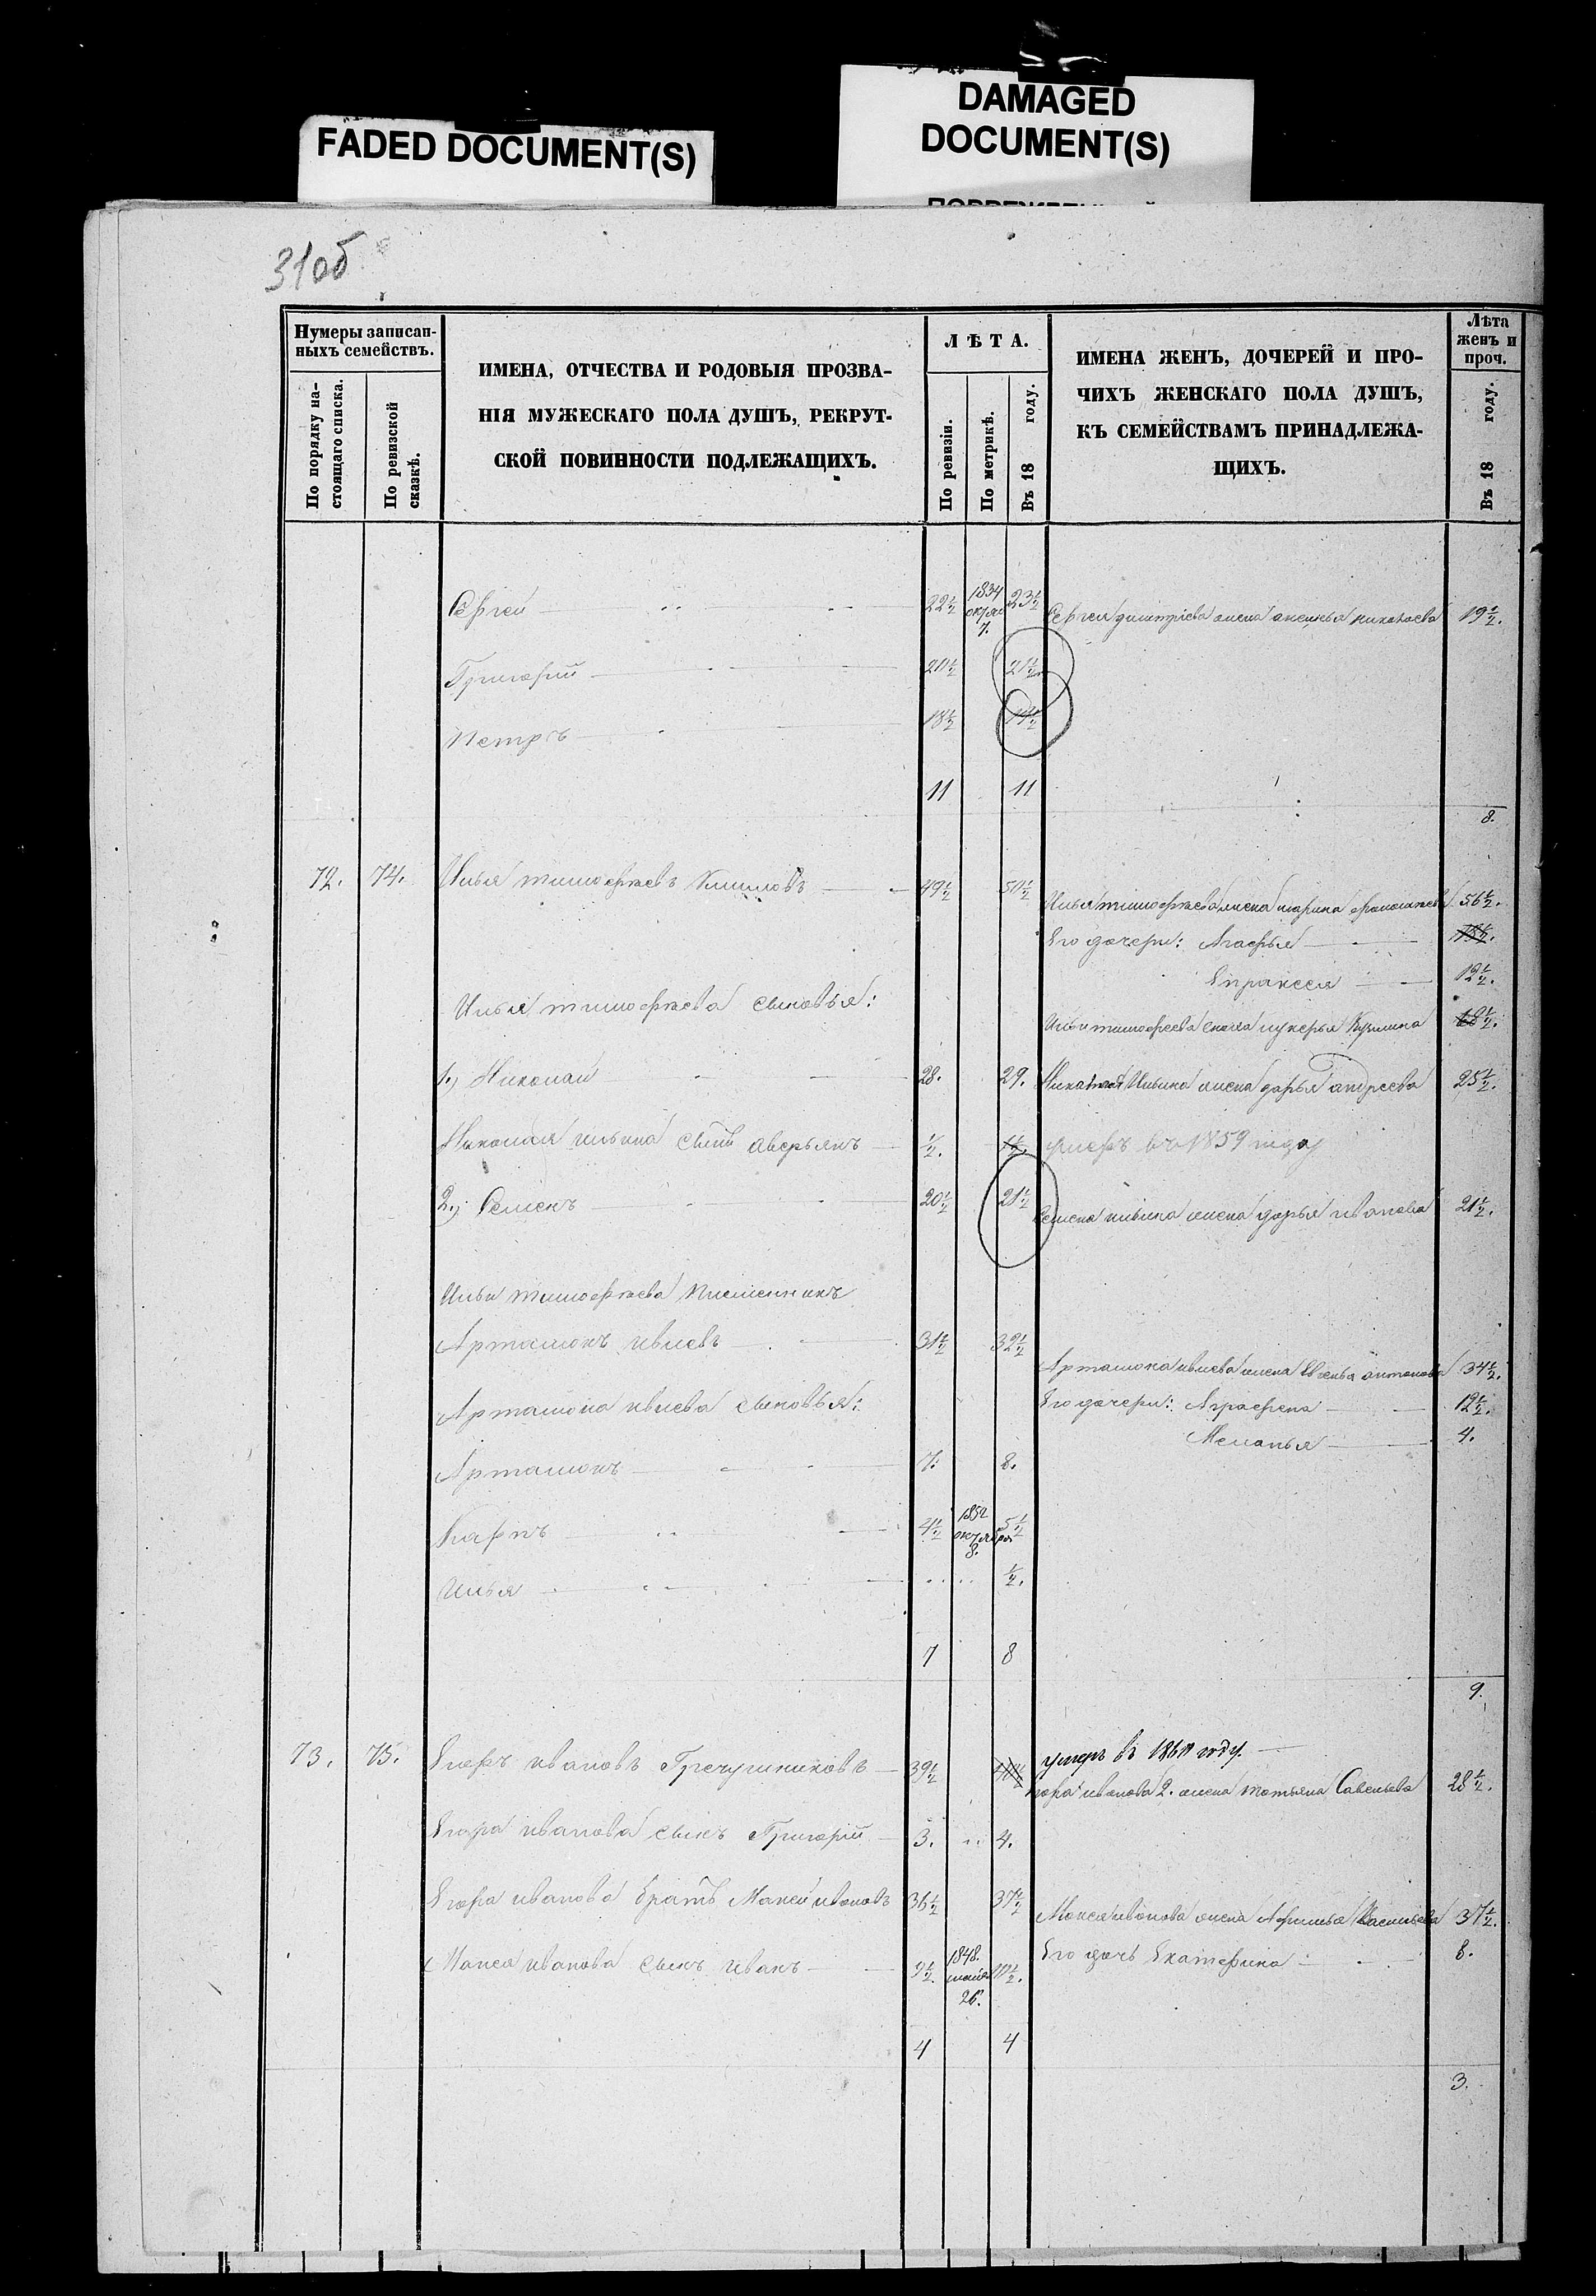 FADED DOCUMENT(S)
DAMAGED
DOCUMENT(S)
31об
Нумеры записан-
ныхъ семействъ.
По порядку на-
стоящаго списка.
По ревизской
сказкѣ.
ИМЕНА, ОТЧЕСТВА И РОДОВЫЯ ПРОЗВА-
НІЯ МУЖЕСКАГО ПОЛА ДУШЪ, РЕКРУТ-
СКОЙ ПОВИННОСТИ ПОДЛЕЖАЩИХЪ.
ЛѢТА.
По ревизіи.
По метрикѣ.
Въ 18 году.
ИМЕНА ЖЕНЪ, ДОЧЕРЕЙ И ПРО-
ЧИХЪ ЖЕНСКАГО ПОЛА ДУШЪ,
КЪ СЕМЕЙСТВАМЪ ПРИНАДЛЕЖА-
ЩИХЪ.
Лѣта
женъ и
проч.
Въ 18 году.
Сергей 22½ 1834 7. 23½ Сергея дмитріева жена аксинья николаева 19½.
Григорій 20½ 21½
Петръ 18½ 19½
11 11
8.
72. 74. Илья тимофеевъ Климовъ 49½ 50½
Ильи тимофеева жена марина 56½.
Его дочери: Агафья
Епраксея 12½.
Ильи тимофеева сыновья:
Ильи тимофеева лукерья Кузмина
1.) Николай 28. 29. Николая Ильина жена дарья андреева 25½.
Николая ильина сынъ аверьянъ ½. 1½. умеръ въ 1859 году
2.) Семенъ 20½ 21½ Семена ильина жена дарья иванова 21½.
Ильи тимофеева племенникъ
Артамонъ ивлевъ 31½ 32½
Артамона ивлева жена Евгенья антонова 34½.
Артамона ивлева сыновья:
Его дочери: Аграфена 12½.
Меланья 4.
Артамонъ 7. 8.
Карпъ 4½ 1852 октября 8. 5½
Илья ½.
7 8
9.
73. 75. Егоръ ивановъ Гречушниковъ 39½ 40½ умеръ въ 1860 году.
Егора иванова 2. жена татьяна Савельева 28½.
Егора иванова сынъ Григорій 3. 4.
Егора иванова братъ Макей ивановъ 36½ 37½
Макея иванова жена Афимья Васильева 37½.
Его дочь Екатерина 8.
Макея иванова сынъ иванъ 9½. 1848. 26. 10½.
4 4
3.